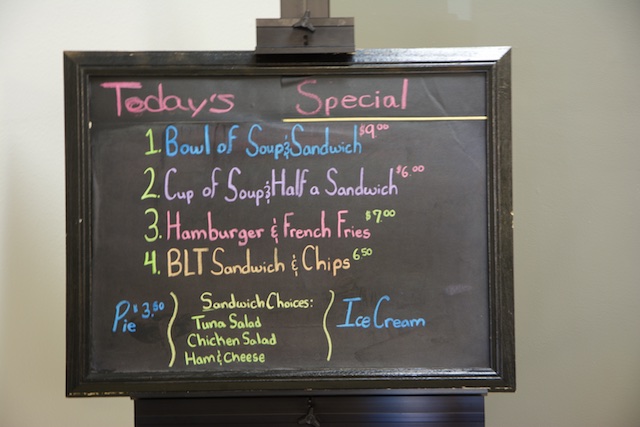 Today's Special
1. Bowl of Soup & Sandwich $9.00
2. Cup of Soup & Half a Sandwich $6.00
3. Hamburger & French Fries $7.00
4. BLT Sandwich & Chips 6.50
Pie $3.50
Sandwich Choices:
Tuna Salad
Chicken Salad
Ham & Cheese
Ice Cream